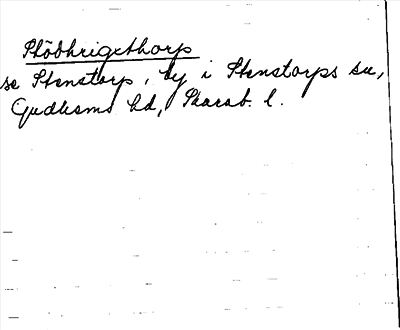 Stöbhrigxthorp
se Stenstorp, by i Stenstorps sn,
Gudhems hd, Skarab. l.